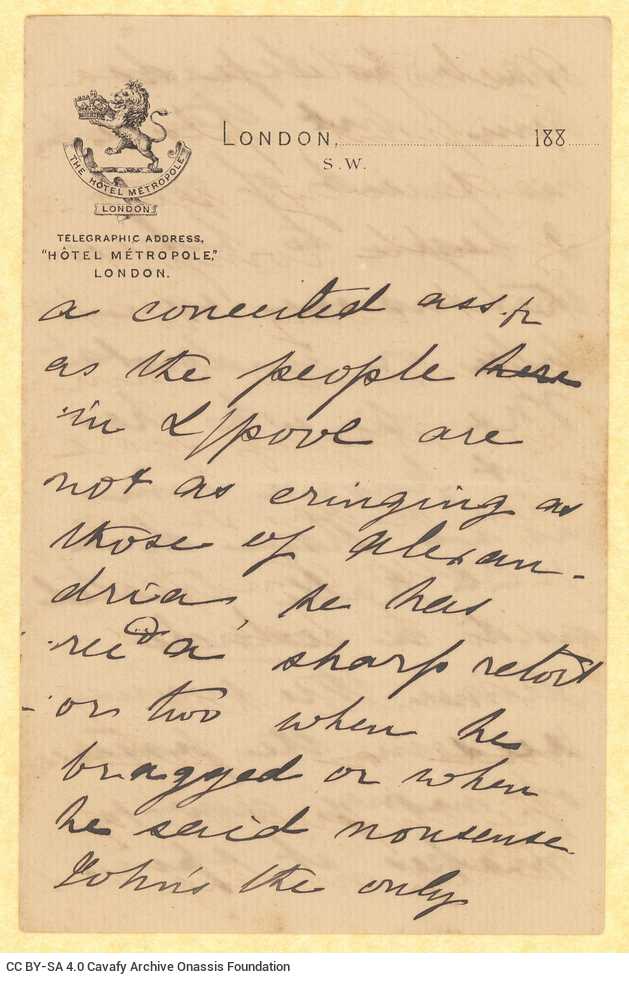 THE HÔTEL METROPOLE
LONDON
LONDON, 188
S.W.
TELEGRAPHIC ADDRESS,
"HÔTEL MÉTROPOLE,"
LONDON.
a conceited ass,
as the people here
in L'pool are
not as cringing as
those of Alexan-
dria, he has
recd a sharp retort
or two when he
bragged or when
he said nonsense.
John's the only
CC BY-SA 4.0 Cavafy Archive Onassis Foundation